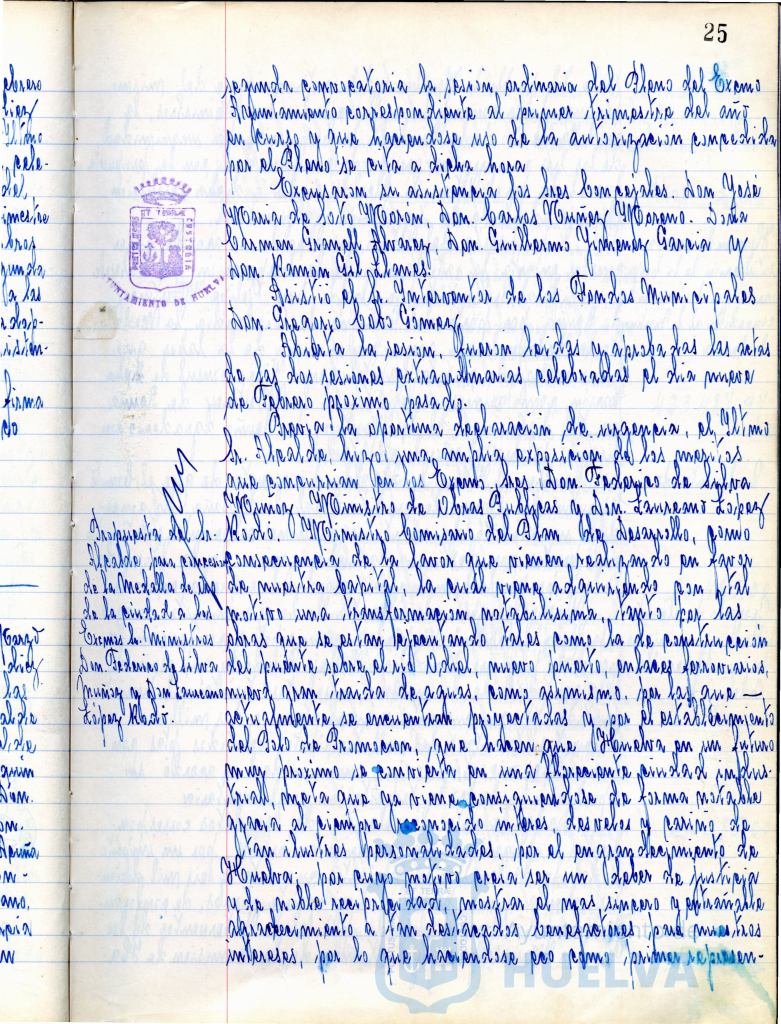 25
segunda convocatoria la sesión ordinaria del Pleno del Excmo
Ayuntamiento correspondiente al primer trimestre del año
en curso y que haciendose uso de la autorización concedida
por el Pleno se cita a dicha hora
Excusaron su asistencia los Sres Concejales. Don José
Maria de Soto Morón, Don. Carlos Nuñez Moreno. Doña
Carmen Granell Alvarez, Don. Guillermo Jimenez Garcia y
Don. Ramón Gil Llanes.
Asistió el Sr. Interventor de los Fondos Municipales
Don. Gregorio Cabo Gómez
Abierta la sesión, fueron leidas y aprobadas las actas
de las dos sesiones extraordinarias celebradas el dia nueve
de Febrero próximo pasado.
Previa la oportuna declaración de urgencia, el Iltmo
Sr. Alcalde, hizo una amplia exposición de los meritos
que concurrian en los Excmos Sres. Don. Federico de Silva
Muñoz, Ministro de Obras Publicas y Don. Laureano López
Rodó, Ministro Comisario del Plan de Desarrollo, como
consecuencia de la favor que vienen realizando en favor
de nuestra Capital, la cual viene adquiriendo con tal
motivo una transformación notabilisima, tanto por las
obras que se estan ejecutando tales, como la de construcción
del puente sobre el rio Odiel, nuevo puerto, enlaces ferroviarios,
nueva gran traida de aguas, como asimismo, por las que —
actualmente se encuentran proyectadas y por el establecimiento
del Polo de Promoción, que hacen que Huelva en un futuro
muy próximo se convierta en una floreciente ciudad indus-
trial, meta que ya viene consiguiendose de forma notable
gracia al siempre reconocido interes, desvelos y cariño de
tan ilustres personalidades, por el engrandecimiento de
Huelva, por cuyo motivo creia ser un deber de justicia
y de noble reciprocidad mostrar el mas sincero y entrañable
agradecimiento a tan destacados benefactores para nuestros
intereses, por lo que haciendose eco como primer represen-
Propuesta del Sr.
Alcalde para concesión
de la Medalla de oro
de la ciudad a los
Excmos Sr. Ministros
Don Federico de Silva
Muñoz y Don Laureano
López Rodó.
AYUNTAMIENTO DE HUELVA
HUELVA